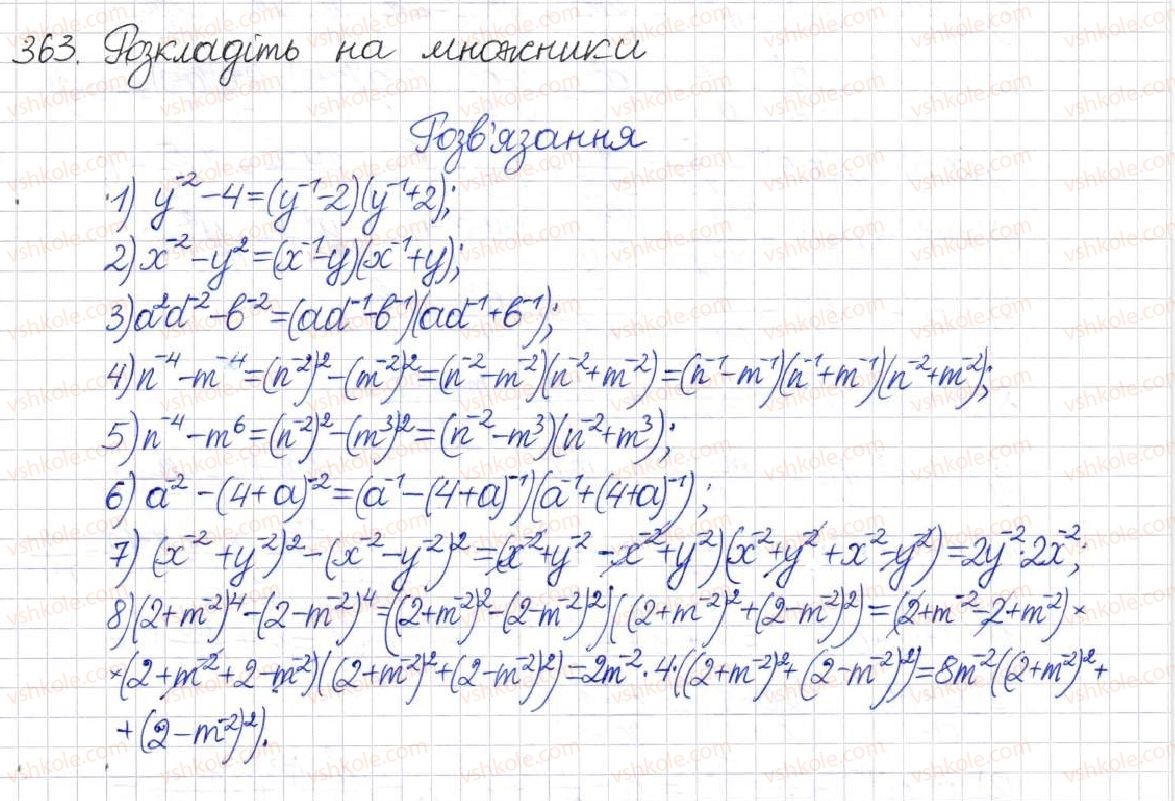 363. Розкладіть на множники
Розв'язання
1) y⁻² - 4 = (y⁻¹ - 2)(y⁻¹ + 2);
2) x⁻² - y² = (x⁻¹ - y)(x⁻¹ + y);
3) a²d⁻² - b⁻² = (ad⁻¹ - b⁻¹)(ad⁻¹ + b⁻¹);
4) n⁻⁴ - m⁻⁴ = (n⁻²)² - (m⁻²)² = (n⁻² - m⁻²)(n⁻² + m⁻²) = (n⁻¹ - m⁻¹)(n⁻¹ + m⁻¹)(n⁻² + m⁻²);
5) n⁻⁴ - m⁶ = (n⁻²)² - (m³)² = (n⁻² - m³)(n⁻² + m³);
6) a⁻² - (4 + a)⁻² = (a⁻¹ - (4 + a)⁻¹)(a⁻¹ + (4 + a)⁻¹);
7) (x⁻² + y⁻²)² - (x⁻² - y⁻²)² = (x⁻² + y⁻² - x⁻² + y⁻²)(x⁻² + y⁻² + x⁻² - y⁻²) = 2y⁻² · 2x⁻²;
8) (2 + m⁻²)⁴ - (2 - m⁻²)⁴ = ((2 + m⁻²)² - (2 - m⁻²)²)((2 + m⁻²)² + (2 - m⁻²)²) = (2 + m⁻² - 2 + m⁻²) ×
× (2 + m⁻² + 2 - m⁻²)((2 + m⁻²)² + (2 - m⁻²)²) = 2m⁻² · 4 · ((2 + m⁻²)² + (2 - m⁻²)²) = 8m⁻²((2 + m⁻²)² +
+ (2 - m⁻²)²).